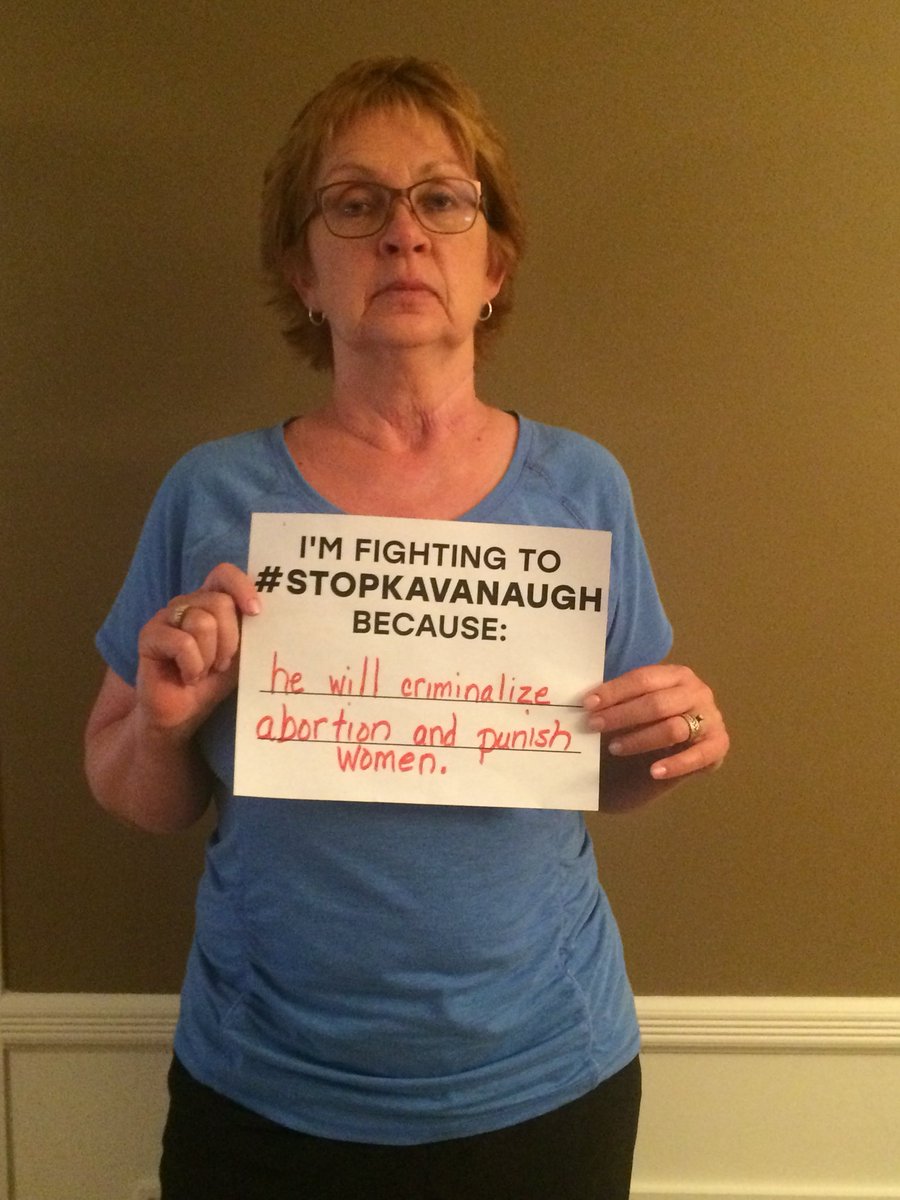 I'M FIGHTING TO
#STOPKAVANAUGH
BECAUSE:
he will criminalize
abortion and punish
women.